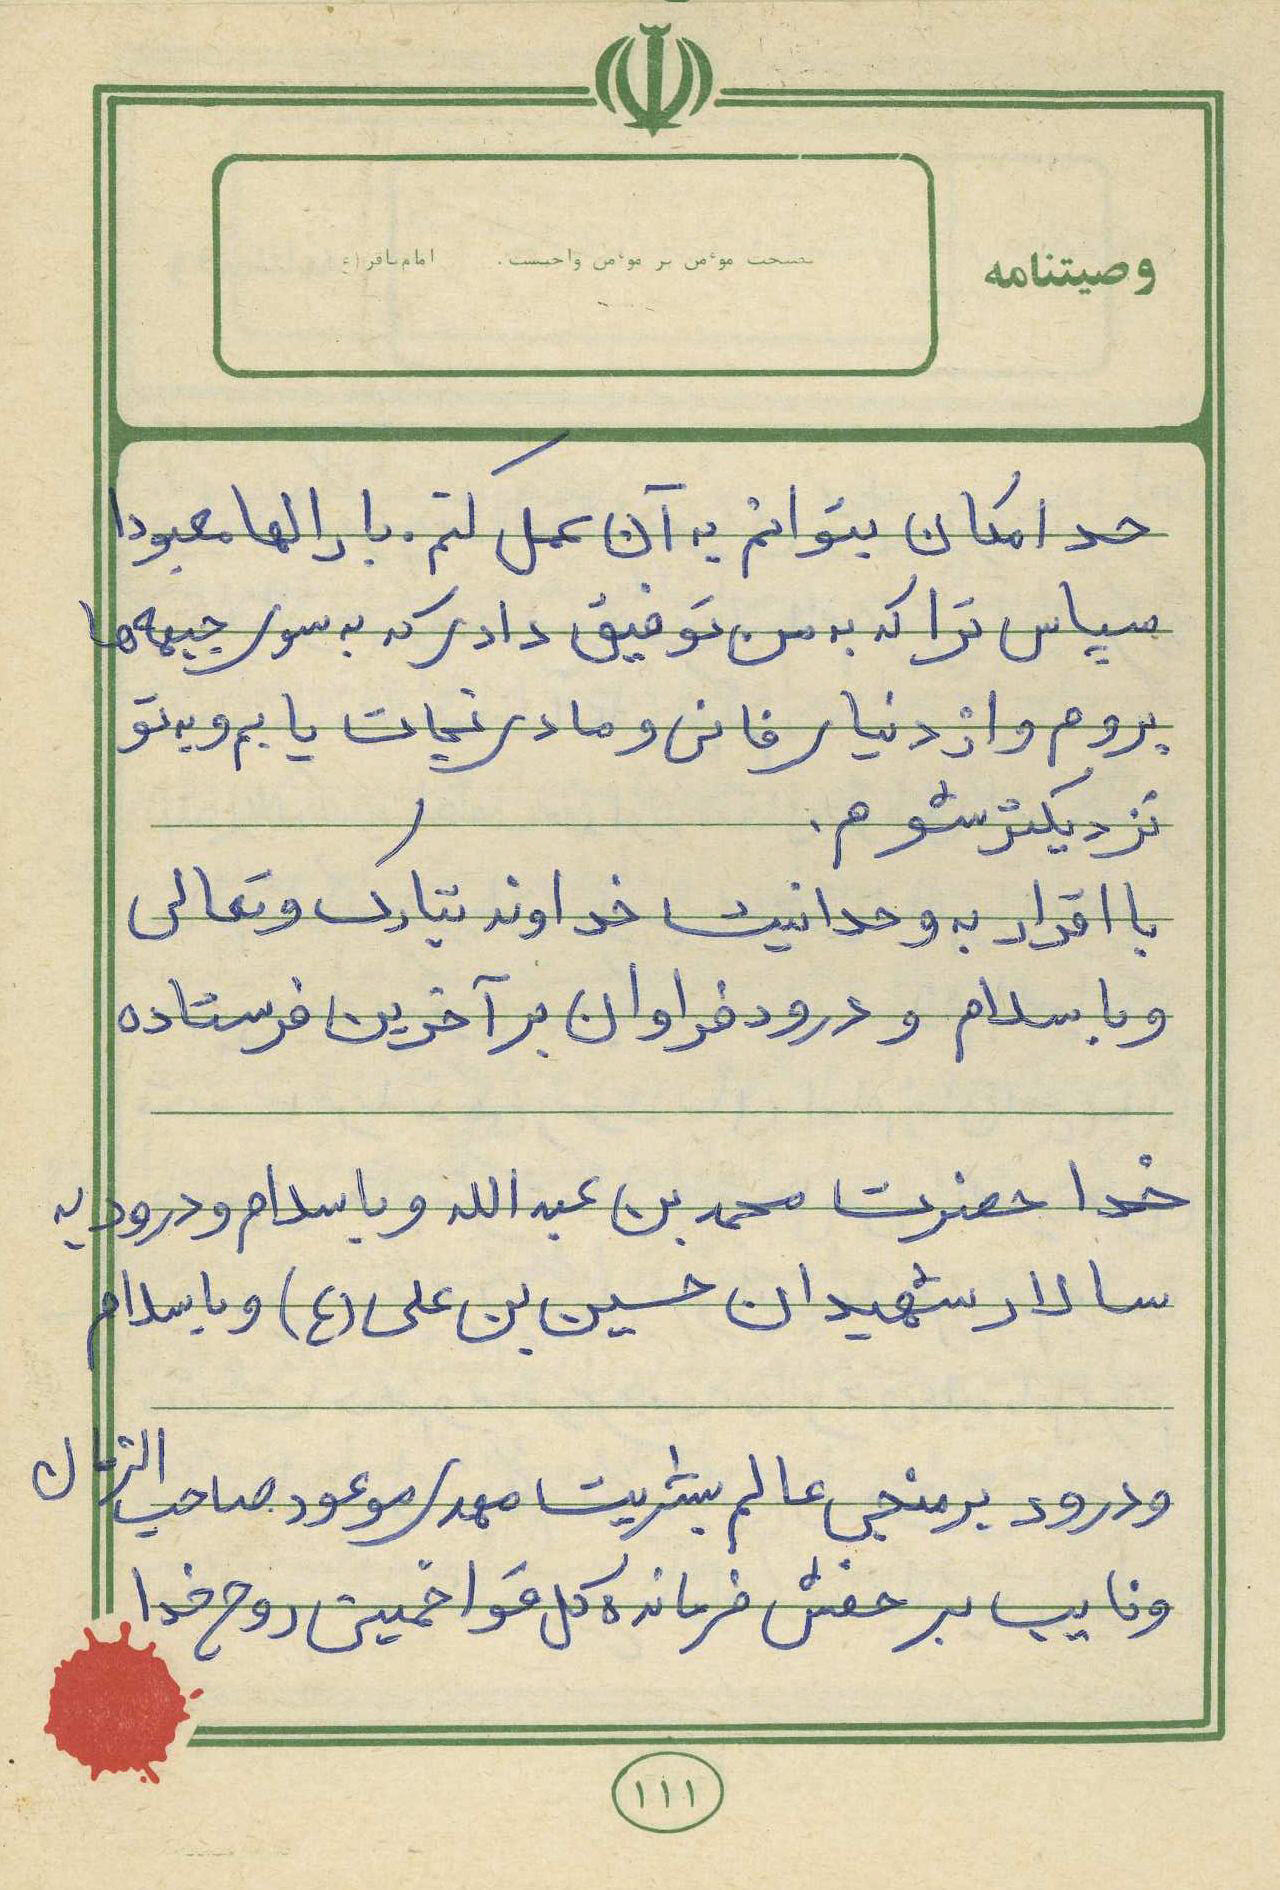 وصیتنامه
نصیحت موءمن بر موءمن واجبست. امام باقر (ع
حد امکان بتوانم به آن عمل کنم. بار الها معبودا
سپاس ترا که به من توفیق دادی که به سوی جبهه ها
بروم و از دنیای فانی و مادی نجات یابم و به تو
نزدیکتر شوم.
با اقرار به وحدانیت خداوند تبارک و تعالی
و با سلام و درود فراوان بر آخرین فرستاده
خدا حضرت محمد بن عبدالله و با سلام و درود به
سالار شهیدان حسین بن علی (ع) و با سلام
و درود بر منجی عالم بشریت مهدی موعود صاحب الزمان
و نایب بر حقش فرمانده کل قوا خمینی روح خدا
۱۱۱